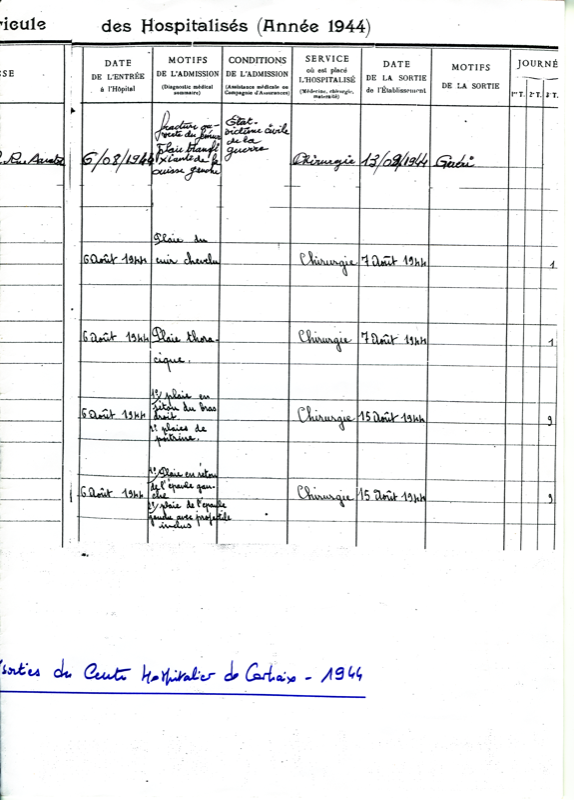 ricule des Hospitalisés (Année 1944)
SE
DATE
DE L'ENTRÉE
à l'Hôpital
MOTIFS
DE L'ADMISSION
(Diagnostic médical
sommaire)
CONDITIONS
DE L'ADMISSION
(Assistance médicale ou
Compagnie d'Assurances)
SERVICE
où est placé
L'HOSPITALISÉ
(Médecine, chirurgie,
maternité)
DATE
DE LA SORTIE
de l'Établissement
MOTIFS
DE LA SORTIE
JOURNÉ
1er T. 2e T. 3e T.
6/08/1944
fracture ou-
verte du fémur
Plaie transfi
xiante de la
cuisse gauche
État-
victime civile
de la
guerre
Chirurgie 13/08/1944 Guéri
6 Août 1944 Plaie du
cuir chevelu Chirurgie 7 Août 1944 1
6 Août 1944 Plaie thora-
cique. Chirurgie 7 Août 1944 1
6 Août 1944 1°/ plaie en
séton du bras
droit.
2° plaies de
poitrine. Chirurgie 15 Août 1944 9
6 Août 1944 1° Plaie en séton
de l'épaule gau-
che
2°/ plaie de l'épaule
gauche avec projectile
inclus Chirurgie 15 Août 1944 9
sorties du Centre Hospitalier de Carhaix - 1944